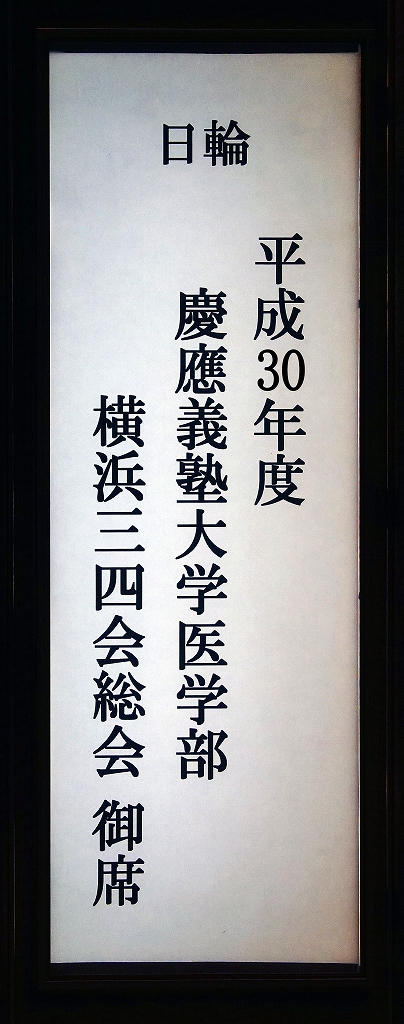 日輪
平成30年度
慶應義塾大学医学部
横浜三四会総会 御席